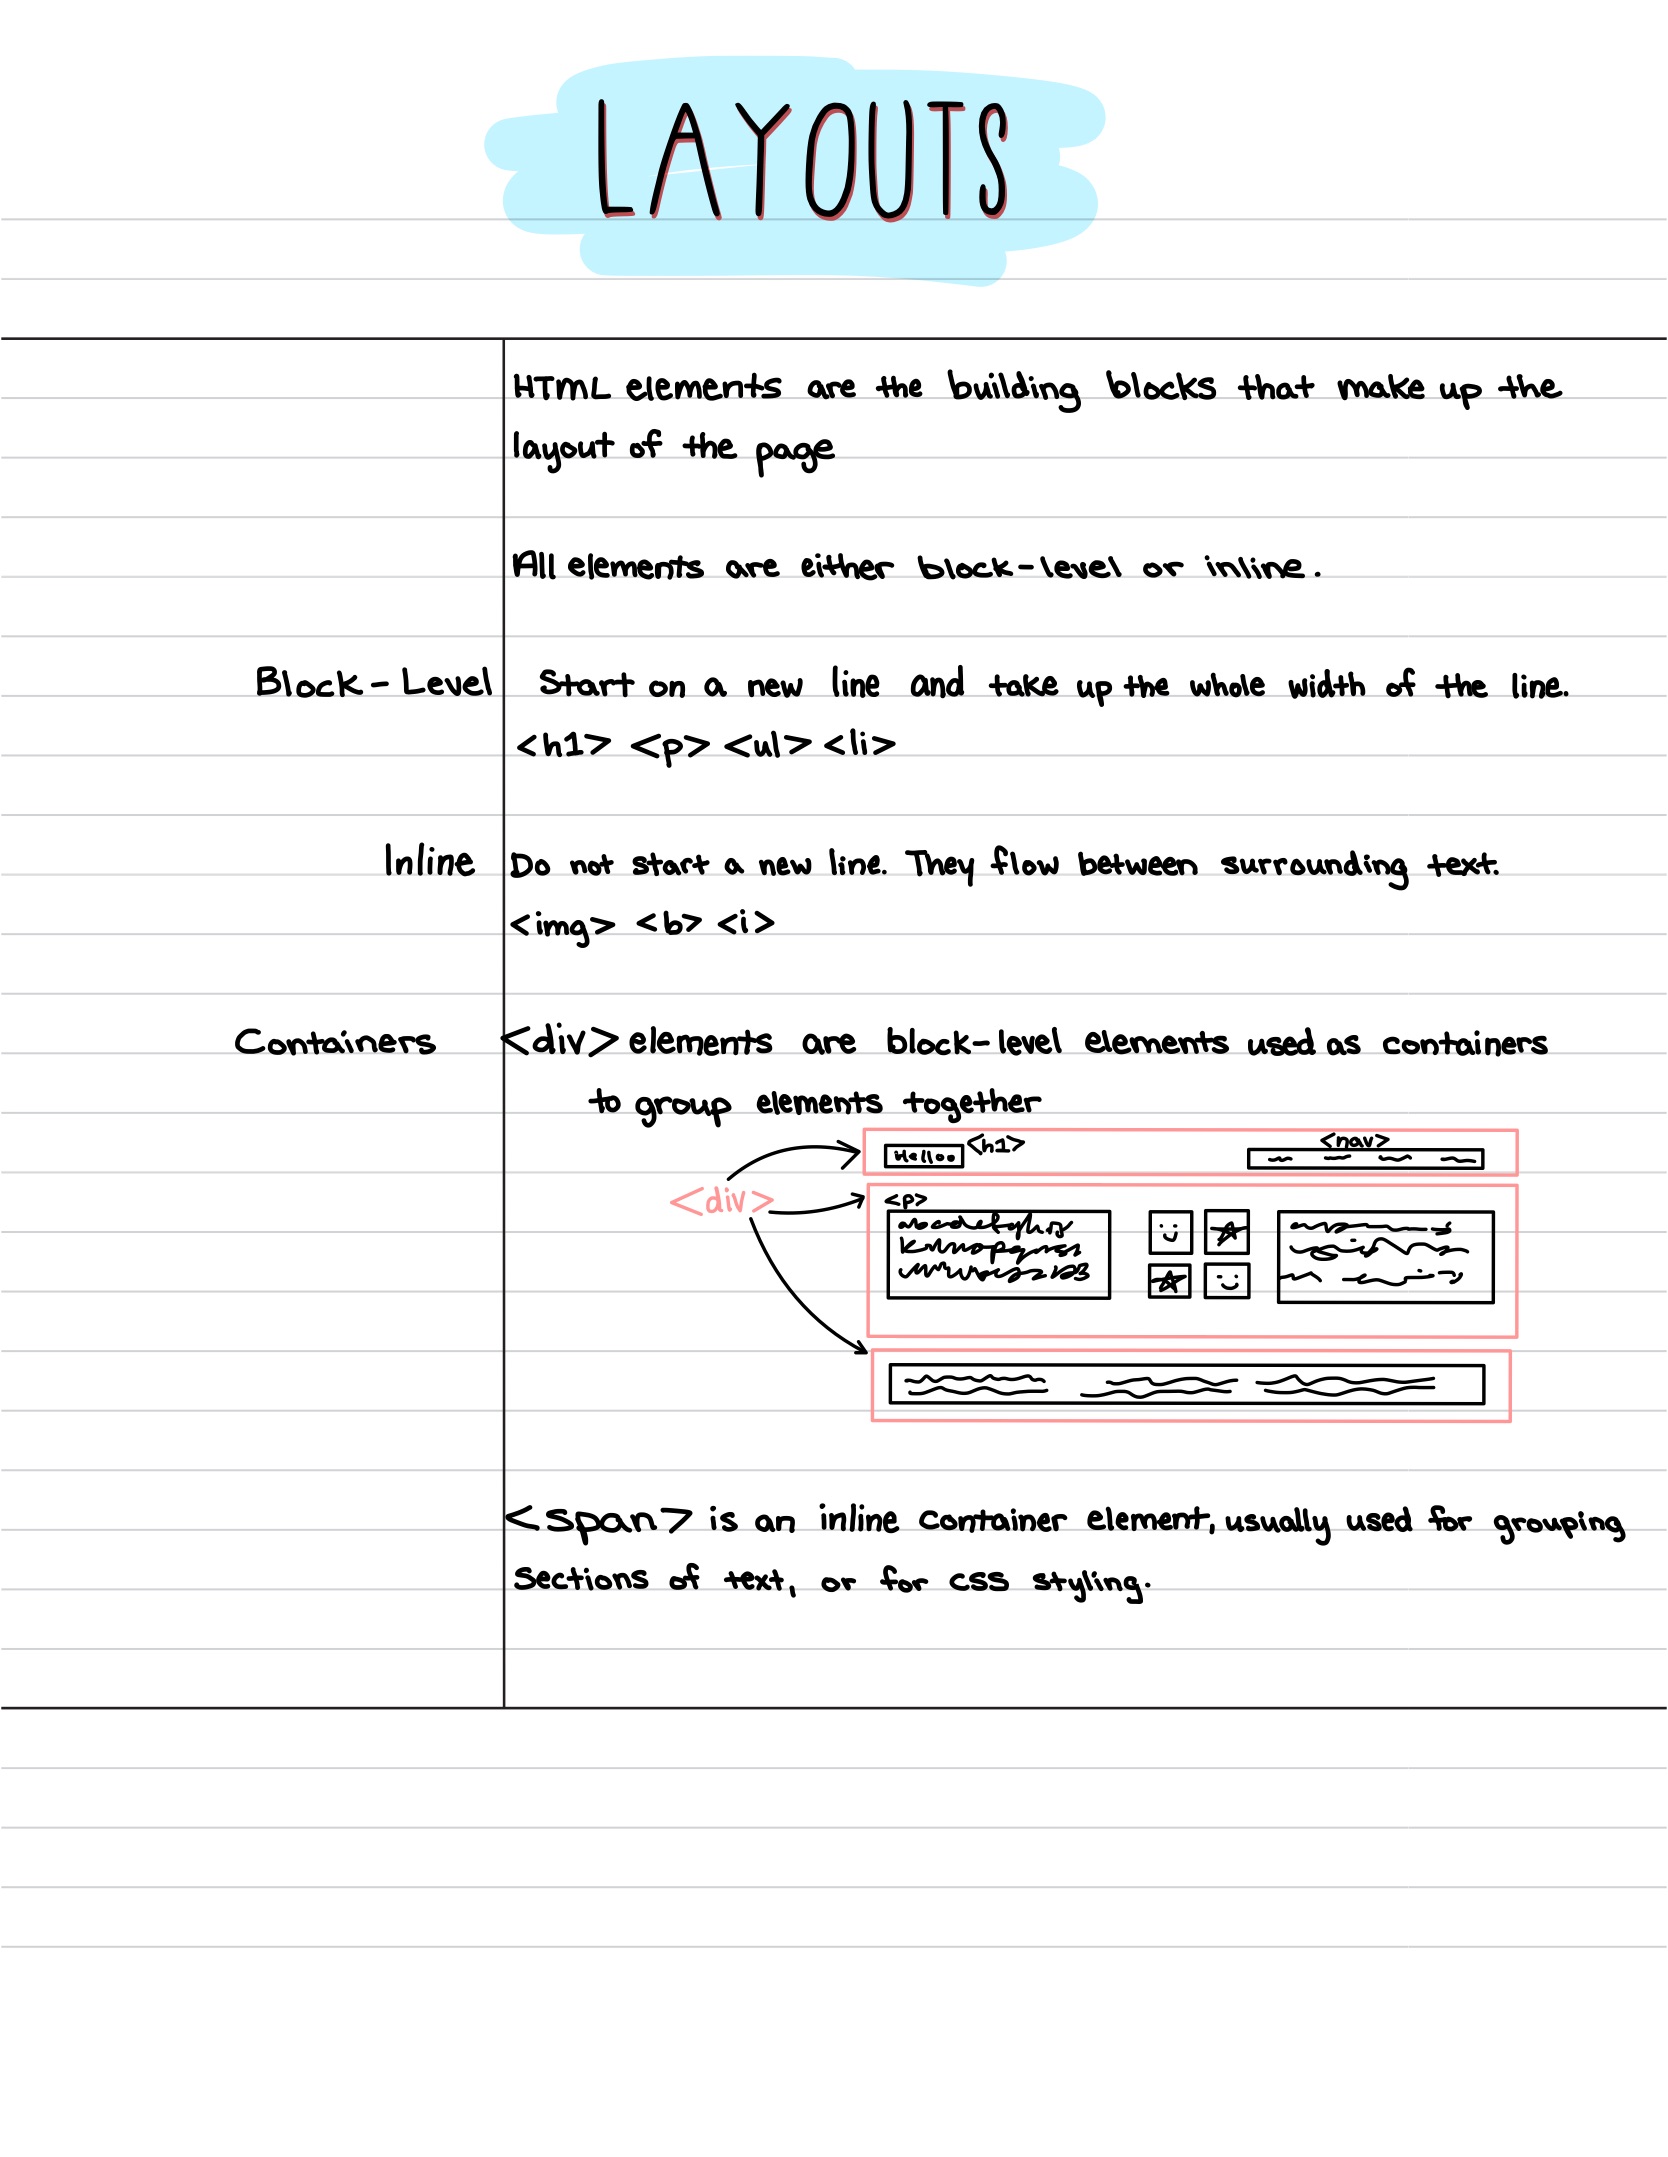 LAYOUTS
HTML elements are the building blocks that make up the
layout of the page
All elements are either block-level or inline.
Block-Level Start on a new line and take up the whole width of the line.
<h1> <p> <ul> <li>
Inline Do not start a new line. They flow between surrounding text.
<img> <b> <i>
Containers <div> elements are block-level elements used as containers
to group elements together
Helloo <h1> <nav>
<div>
<p>
<span> is an inline container element, usually used for grouping
sections of text, or for CSS styling.